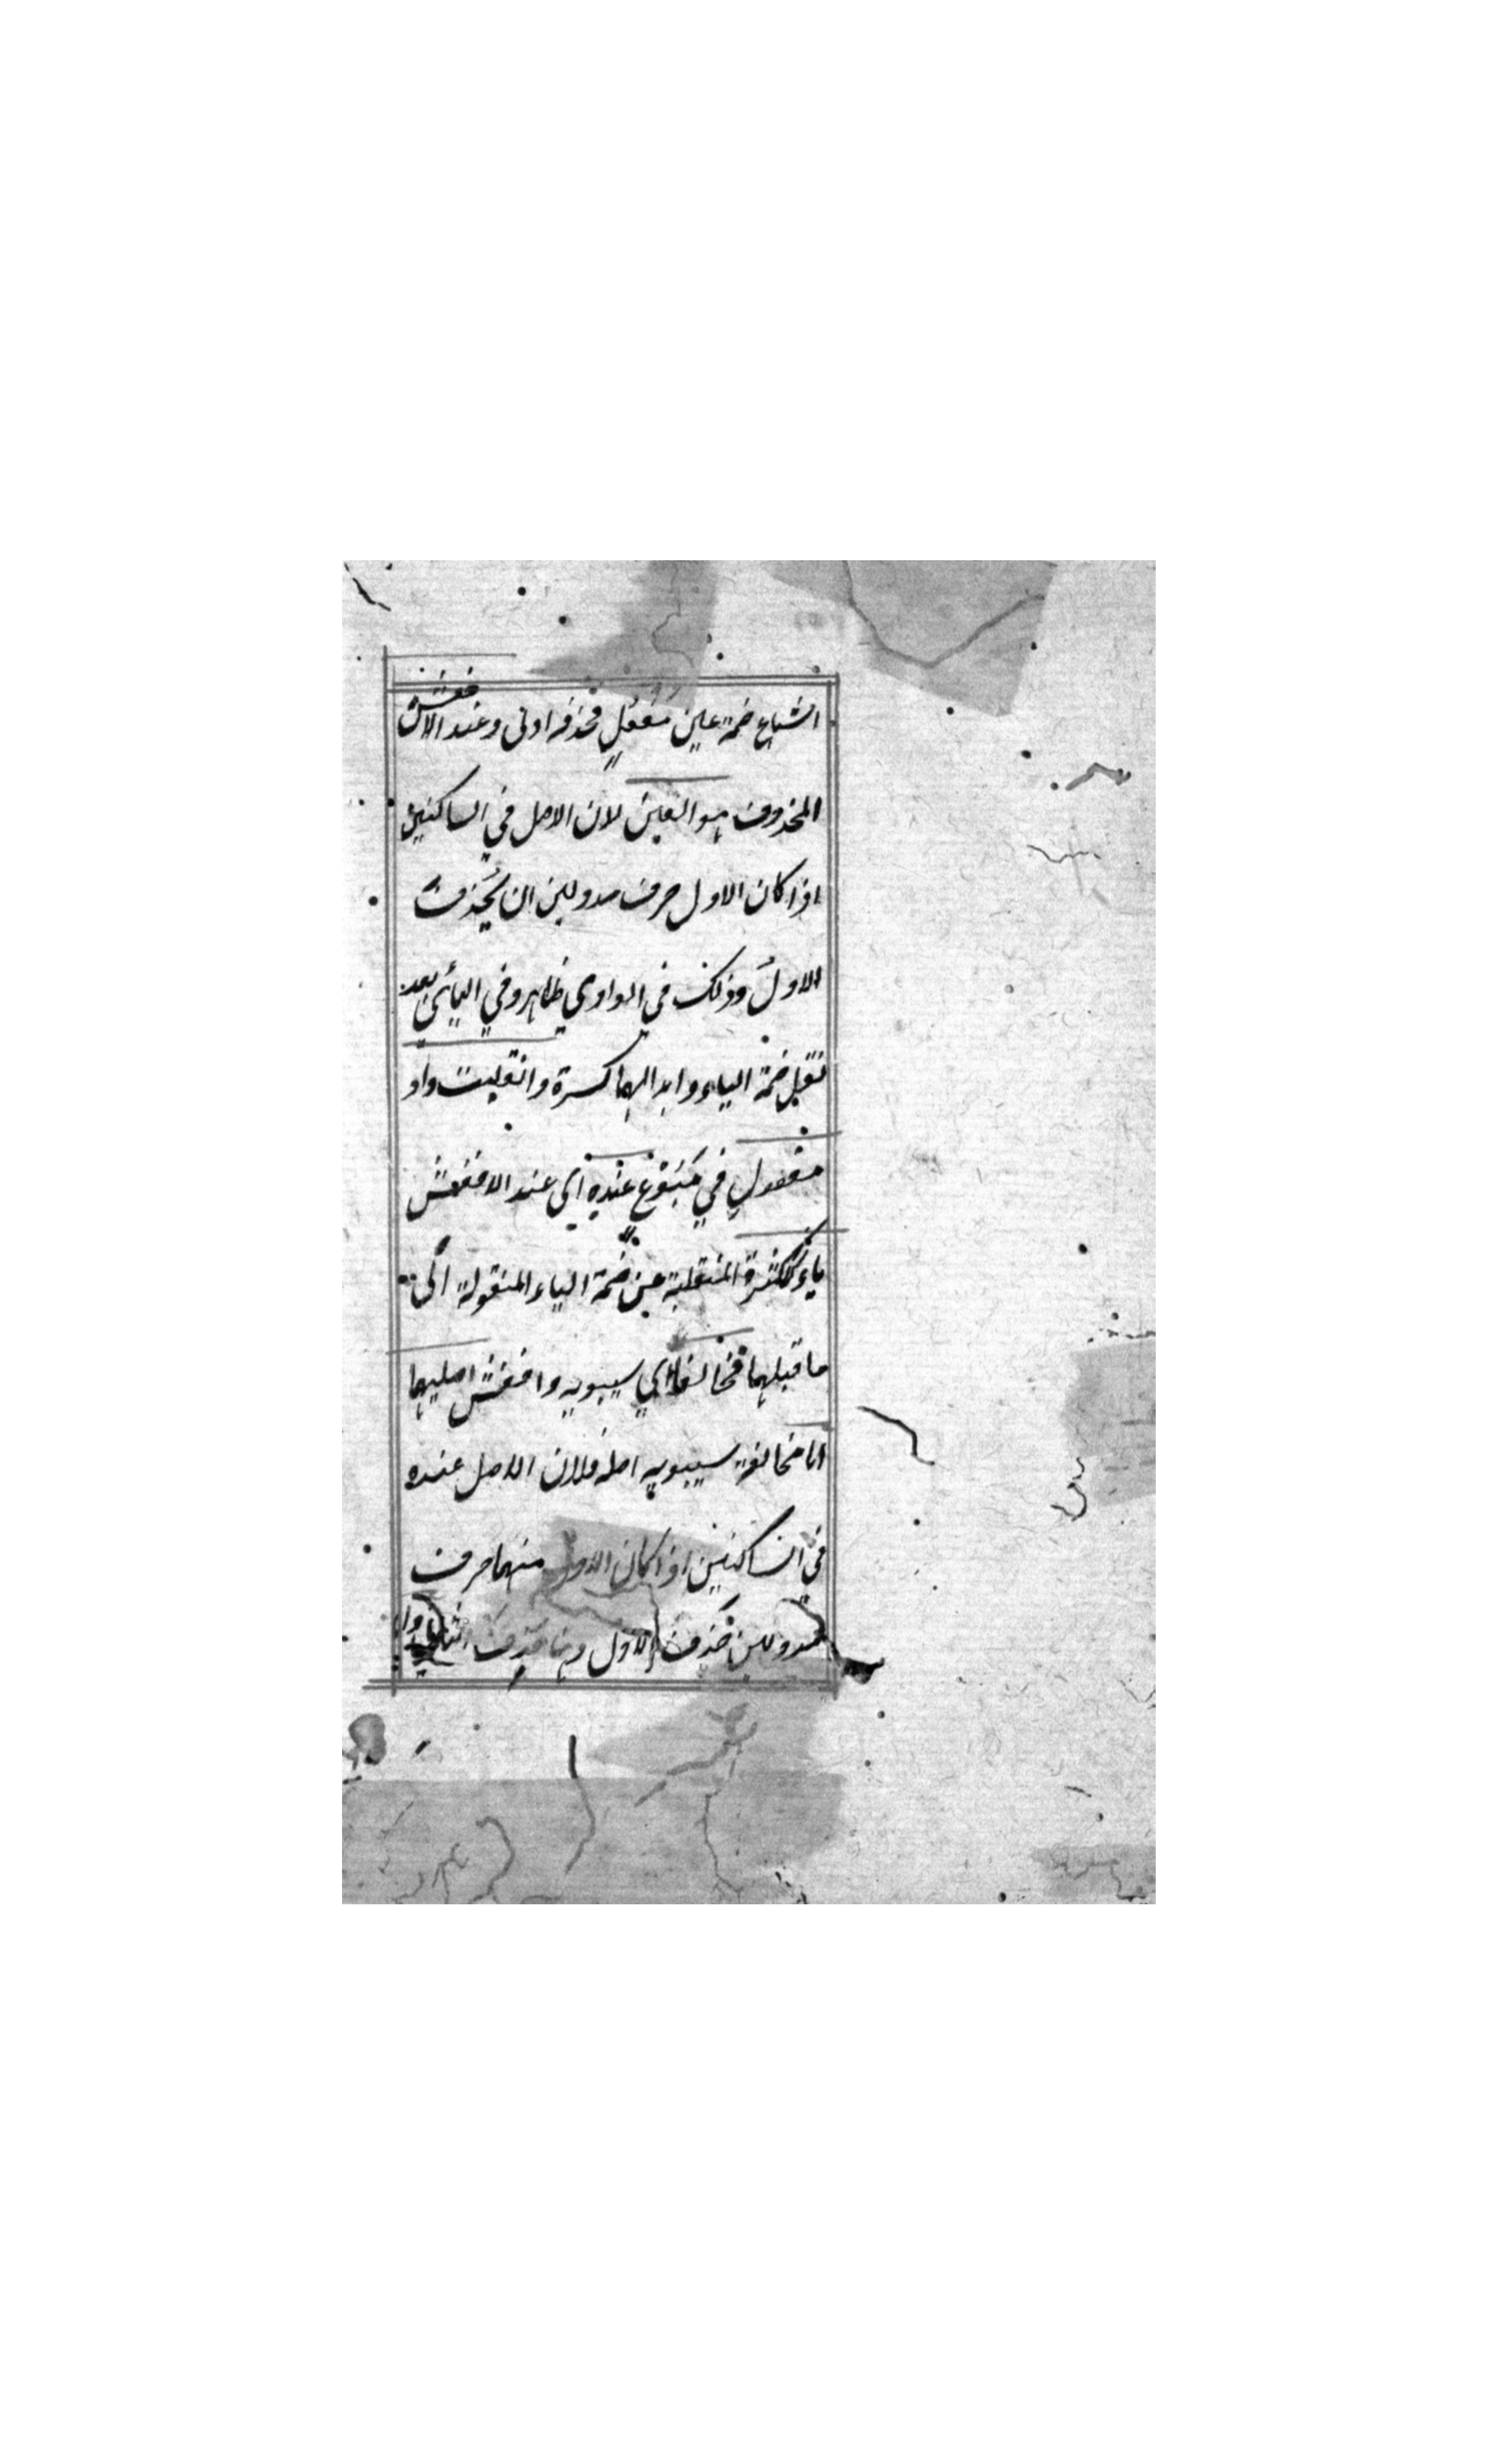 اشباع ضمة عين مَفعُلٍ فحذفه اولى وعند الاخفش
المحذوف هو العين لان الاصل في الساكنين
اذا كان الاول حرف مد ولين ان يُحذف
الاولُ وذلك في الواوي ظاهر وفي اليائي بعد
نقل ضمة الياء وابدالها كسرة وانقلبت واو
مفعول في مَبْيُوْع عنده اي عند الاخفش
ياء للكسرة المنقلبة عن ضمة الياء المنقولة الى
ما قبلها فخالفا اي سيبويه واخفش اصليهما
اما مخالفة سيبويه اصله فلان الاصل عنده
في الساكنين اذا كان الاول منهما حرف
مد ولين حذف الاول وهنا حذف الثاني